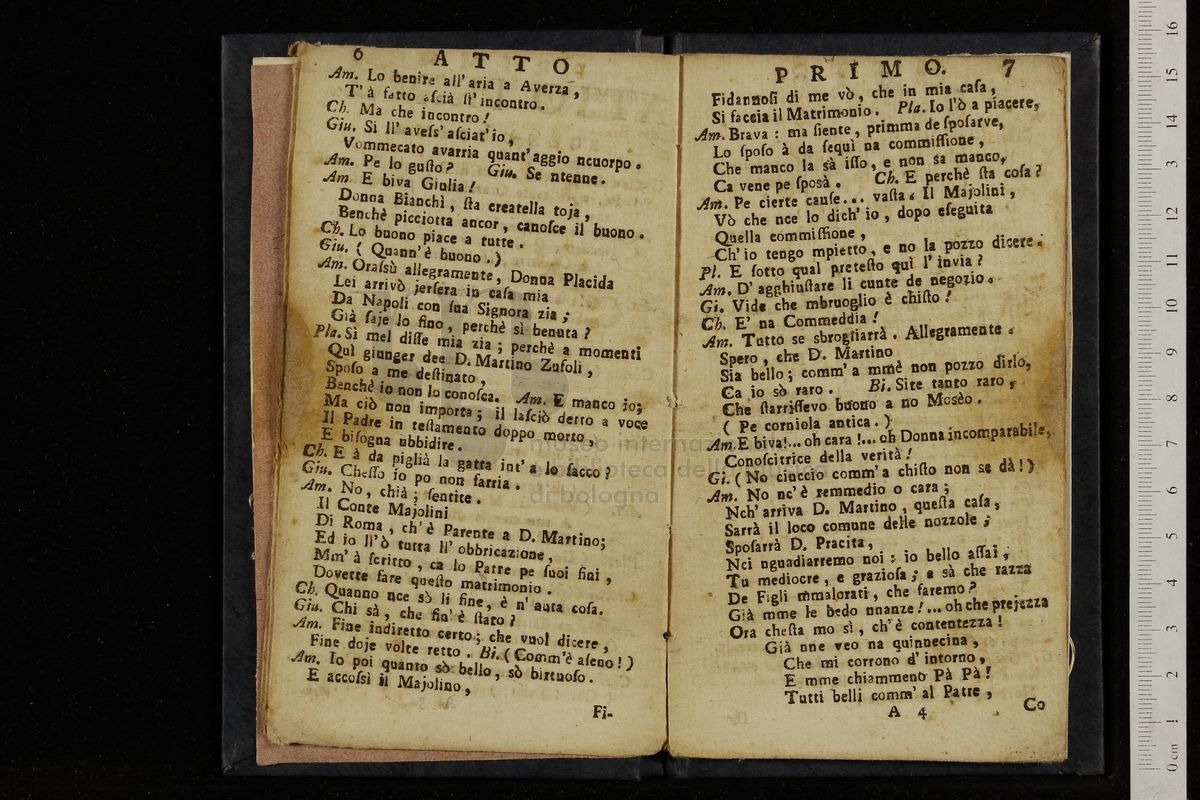 6 ATTO
Am. Lo benire all' aria a Averza,
T' à fatto ascià st' incontro.
Ch. Ma che incontro!
Giu. Si ll' avess' asciat' io,
Vommecato avarria quant' aggio ncuorpo.
Am. Pe lo gusto? Giu. Se ntenne.
Am. E biva Giulia!
Donna Bianchì, sta createlle toja,
Benchè picciotta ancor, canosce il buono.
Ch. Lo buono piace a tutte.
Giu. ( Quann' è buono. )
Am. Orassù allegramente, Donna Placida
Lei arrivò jersera in casa mia
Da Napoli con sua Signora zia;
Già saje lo fino, perchè sì benuta?
Pla. Sì mel disse mia zia; perchè a momenti
Quì giunger dee D. Martino Zufoli,
Sposo a me destinato,
Benchè io non lo conosca. Am. E manco io;
Ma ciò non importa; il lasciò detto a voce
Il Padre in testamento doppo morto,
E bisogna ubbidire.
Ch. E à da piglià la gatta int' a lo sacco?
Giu. Chesso io po non farria.
Am. No, chià; sentite.
Il Conte Majolini
Di Roma, ch' è Parente a D. Martino;
Ed io ll' ò tutta ll' obbricazione,
Mm' à scritto, ca lo Patre pe suoi fini,
Dovette fare questo matrimonio.
Ch. Quanno nce sò li fine, è n' auta cosa.
Giu. Chi sà, che fin' è stato?
Am. Fine indiretto certo; che vuol dicere,
Fine doje volte retto. Bi. ( Comm' è aseno! )
Am. Io poi quanto sò bello, sò birtuoso.
E accossì il Majolino,
Fi-
PRIMO. 7
Fidannosi di me vò, che in mia casa,
Si faccia il Matrimonio. Pla. Io l'ò a piacere,
Am. Brava: ma siente, primma de sposarve,
Lo sposo à da sequì na commissione,
Che manco la sà isso, e non sa manco,
Ca vene pe sposà. Ch. E perchè sta cosa?
Am. Pe cierte cause... vasta. Il Majolini,
Vò che nce lo dich' io, dopo eseguita
Quella commissione,
Ch' io tengo mpietto, e no la pozzo dicere.
Pl. E sotto qual pretesto quì l' invia?
Am. D' agghiustare li cunte de negozio.
Gi. Vide che mbruoglio è chisto!
Ch. E' na Commeddia!
Am. Tutto se sbrogliarrà. Allegramente.
Spero, che D. Martino
Sia bello; comm' a mmè non pozzo dirlo,
Ca io sò raro. Bi. Site tanto raro,
Che starrissevo buono a no Mosèo.
( Pe corniola antica. )
Am. E biva!... oh cara!... oh Donna incomparabile,
Conoscitrice della verità!
Gi. ( No ciuccio comm' a chisto non se dà! )
Am. No nc' è remmedio o cara;
Nch' arriva D. Martino, questa casa,
Sarrà il loco comune delle nozzole;
Sposarrà D. Pracita,
Nci nguadiarremo noi: io bello assai,
Tu mediocre, e graziosa; e sà che razza
De Figli mmalorati, che faremo?
Già mme le bedo nnanze!... oh che prejezza
Ora chesta mo sì, ch' è contentezza!
Già nne veo na quinnecina,
Che mi corrono d' intorno,
E mme chiammeno Pà Pà!
Tutti belli comm' al Patre,
A 4 Co
museo internazionale
biblioteca della musica
di bologna